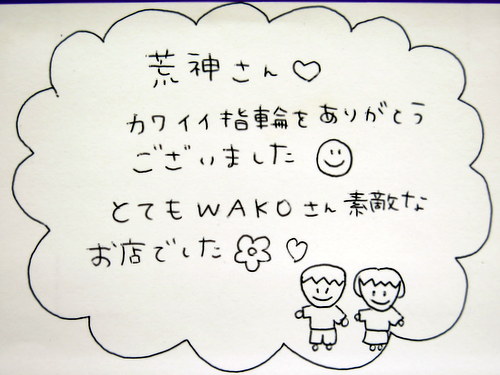 荒神さん♡
カワイイ指輪をありがとう
ございました
とてもWAKOさん素敵な
お店でした